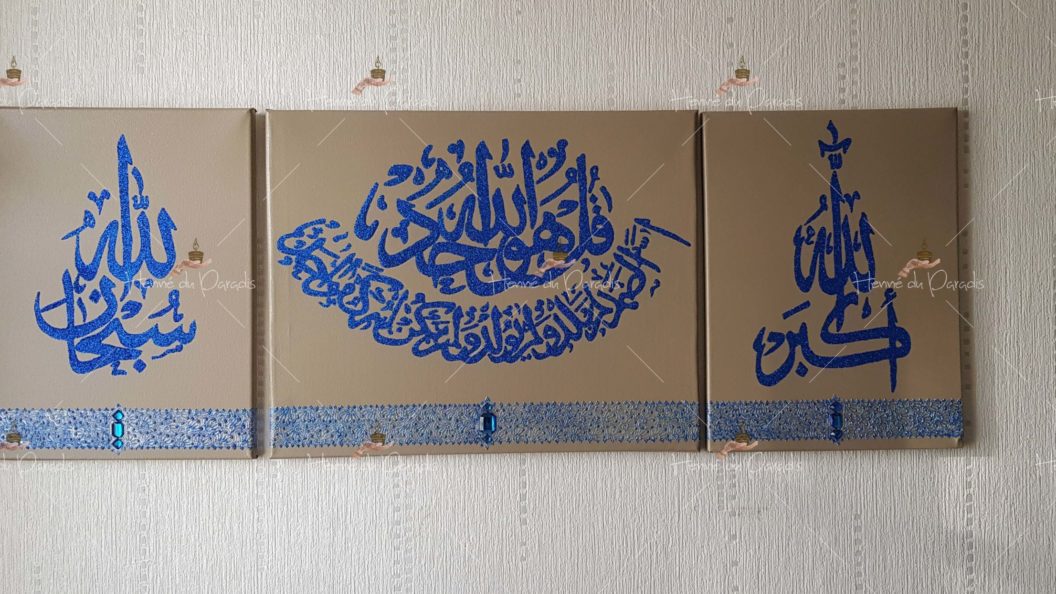 الله أكبر
قل هو الله أحد
الله الصمد لم يلد ولم يولد ولم يكن له كفوا أحد
سبحان الله
Henné du Paradis
Henné du Paradis
Henné du Paradis
Henné du Paradis
Henné du Paradis
Henné du Paradis